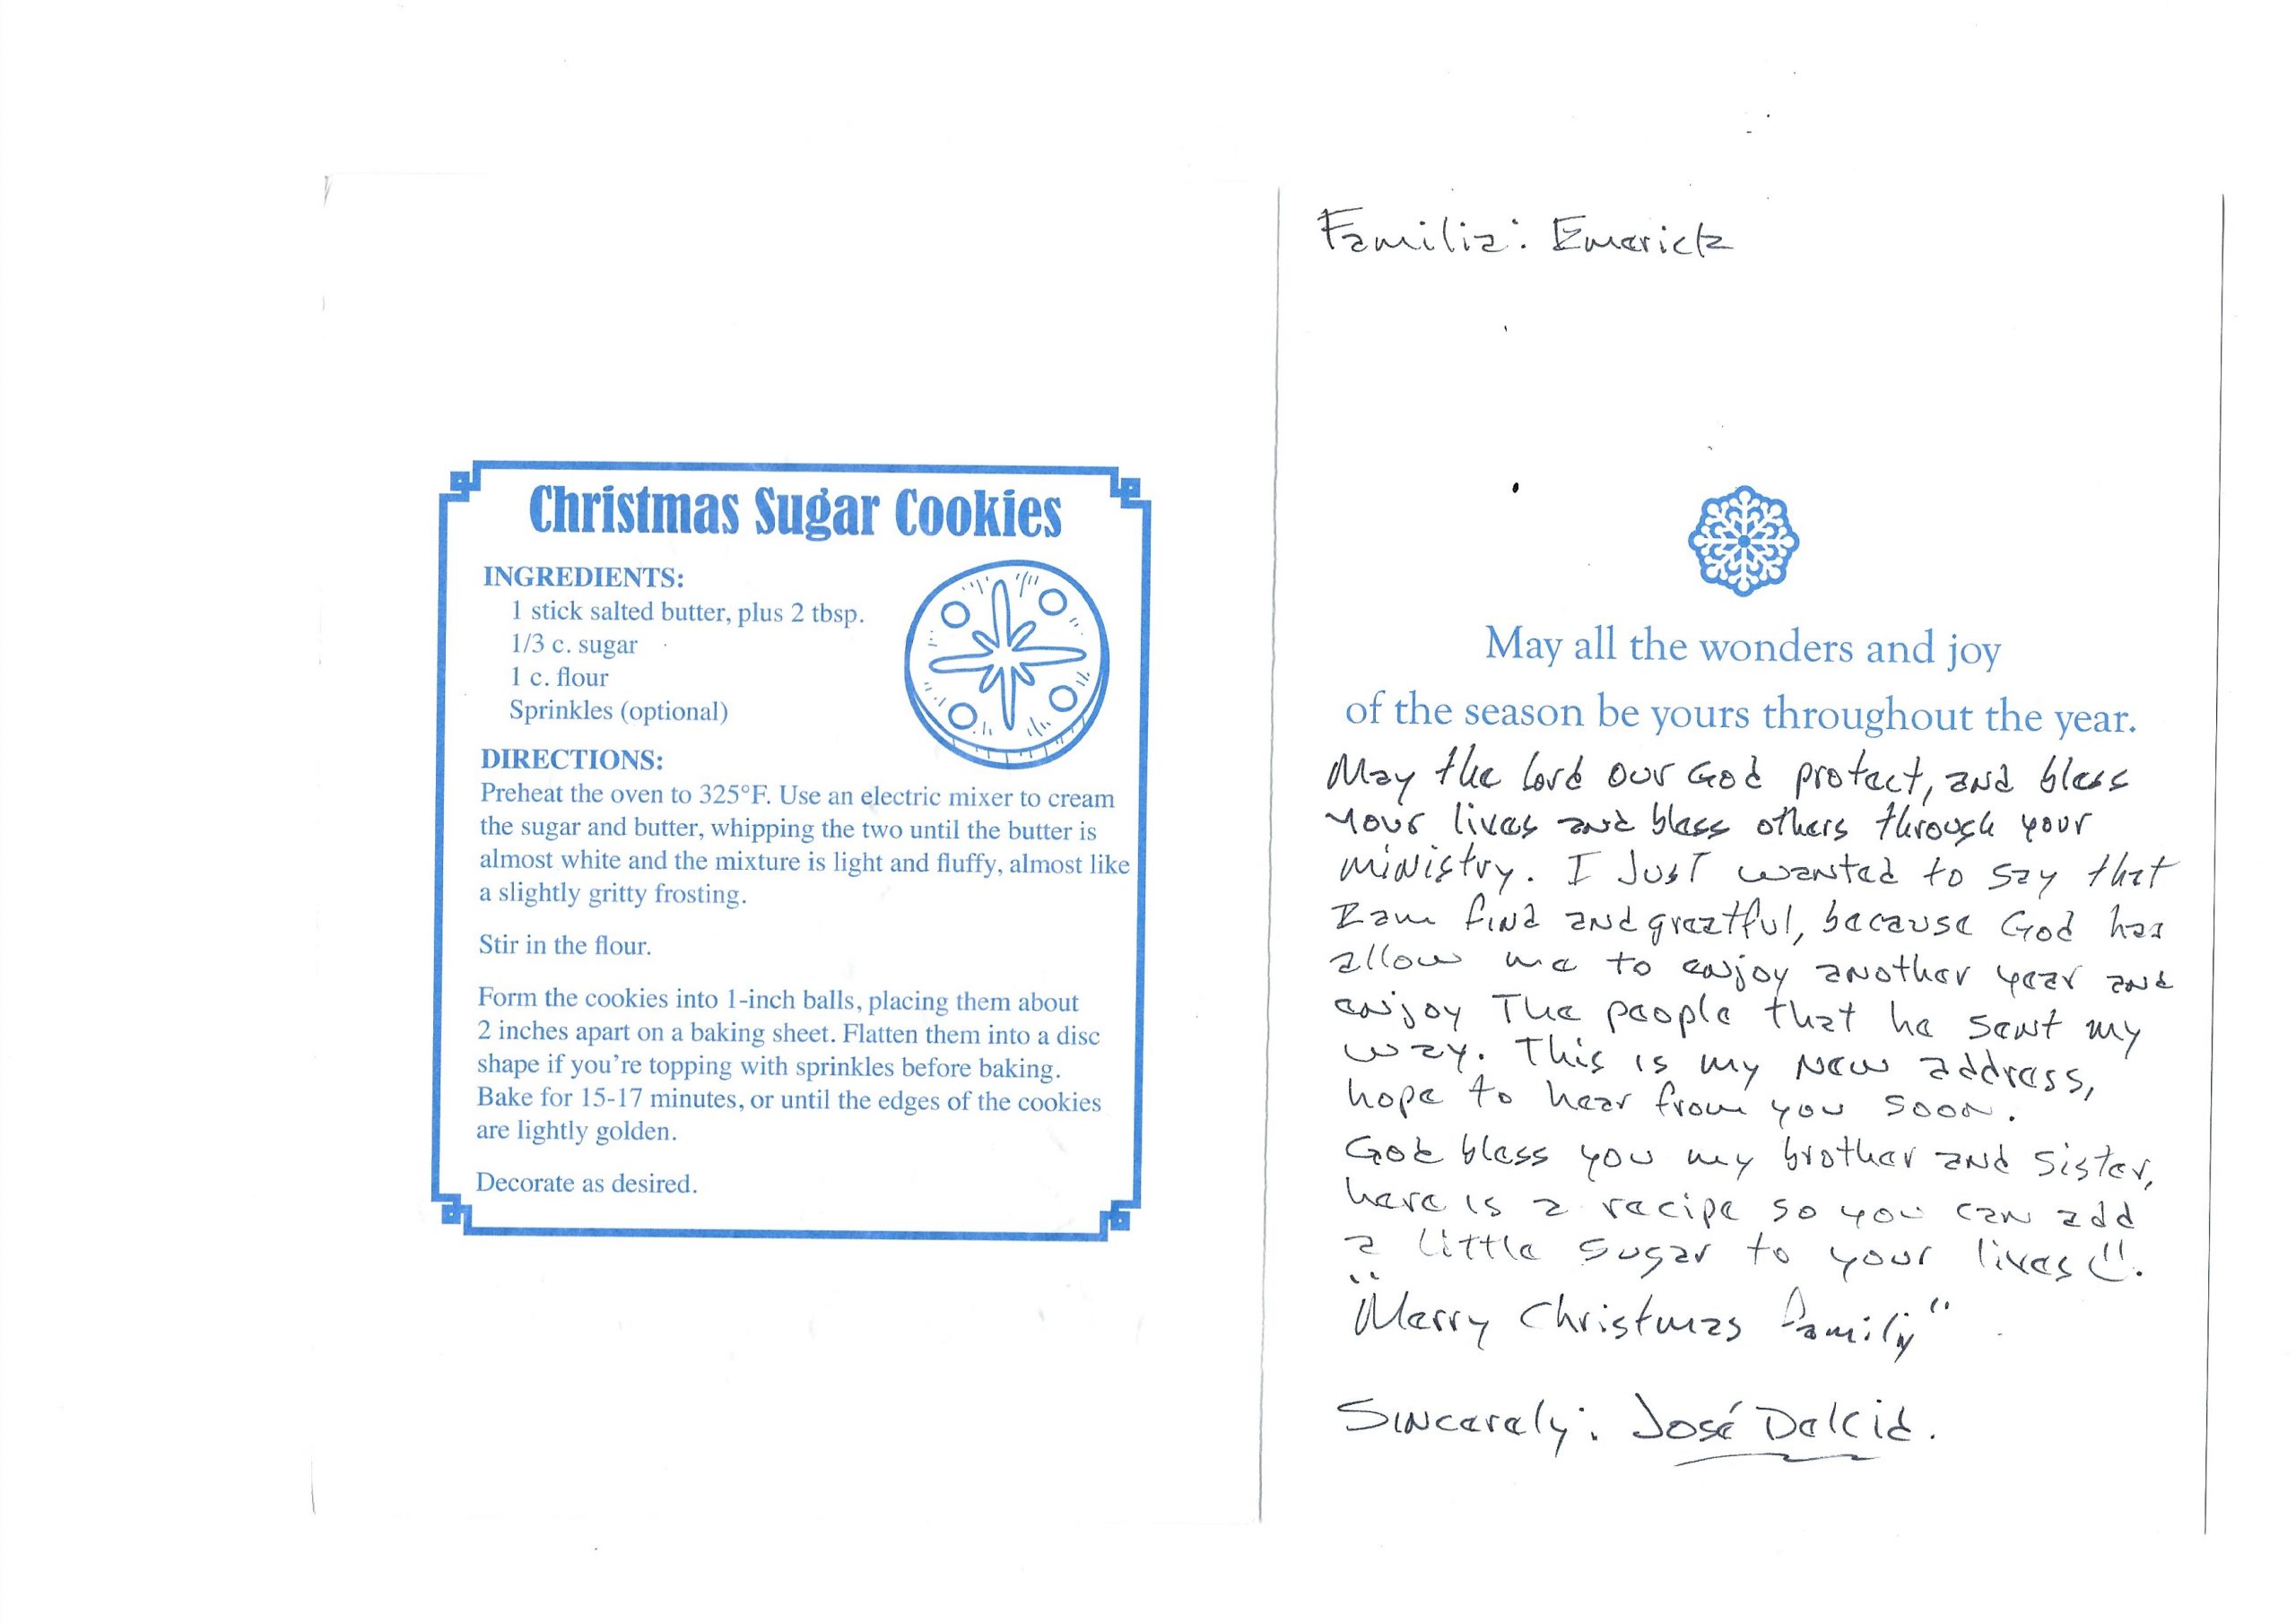 Christmas Sugar Cookies
INGREDIENTS:
1 stick salted butter, plus 2 tbsp.
1/3 c. sugar
1 c. flour
Sprinkles (optional)
DIRECTIONS:
Preheat the oven to 325°F. Use an electric mixer to cream
the sugar and butter, whipping the two until the butter is
almost white and the mixture is light and fluffy, almost like
a slightly gritty frosting.
Stir in the flour.
Form the cookies into 1-inch balls, placing them about
2 inches apart on a baking sheet. Flatten them into a disc
shape if you're topping with sprinkles before baking.
Bake for 15-17 minutes, or until the edges of the cookies
are lightly golden.
Decorate as desired.
Familia: Emerick
May all the wonders and joy
of the season be yours throughout the year.
May the lord our God protect, and bless
Your lives and bless others through your
ministry. I Just wanted to say that
I am find and greatful, because God has
allow me to enjoy another year and
enjoy The people that he sent my
way. This is my New address,
hope to hear from you soon.
God bless you my brother and sister,
here is a recipe so you can add
a little sugar to your lives.
"Merry Christmas family"
Sincerely: José Delcid.